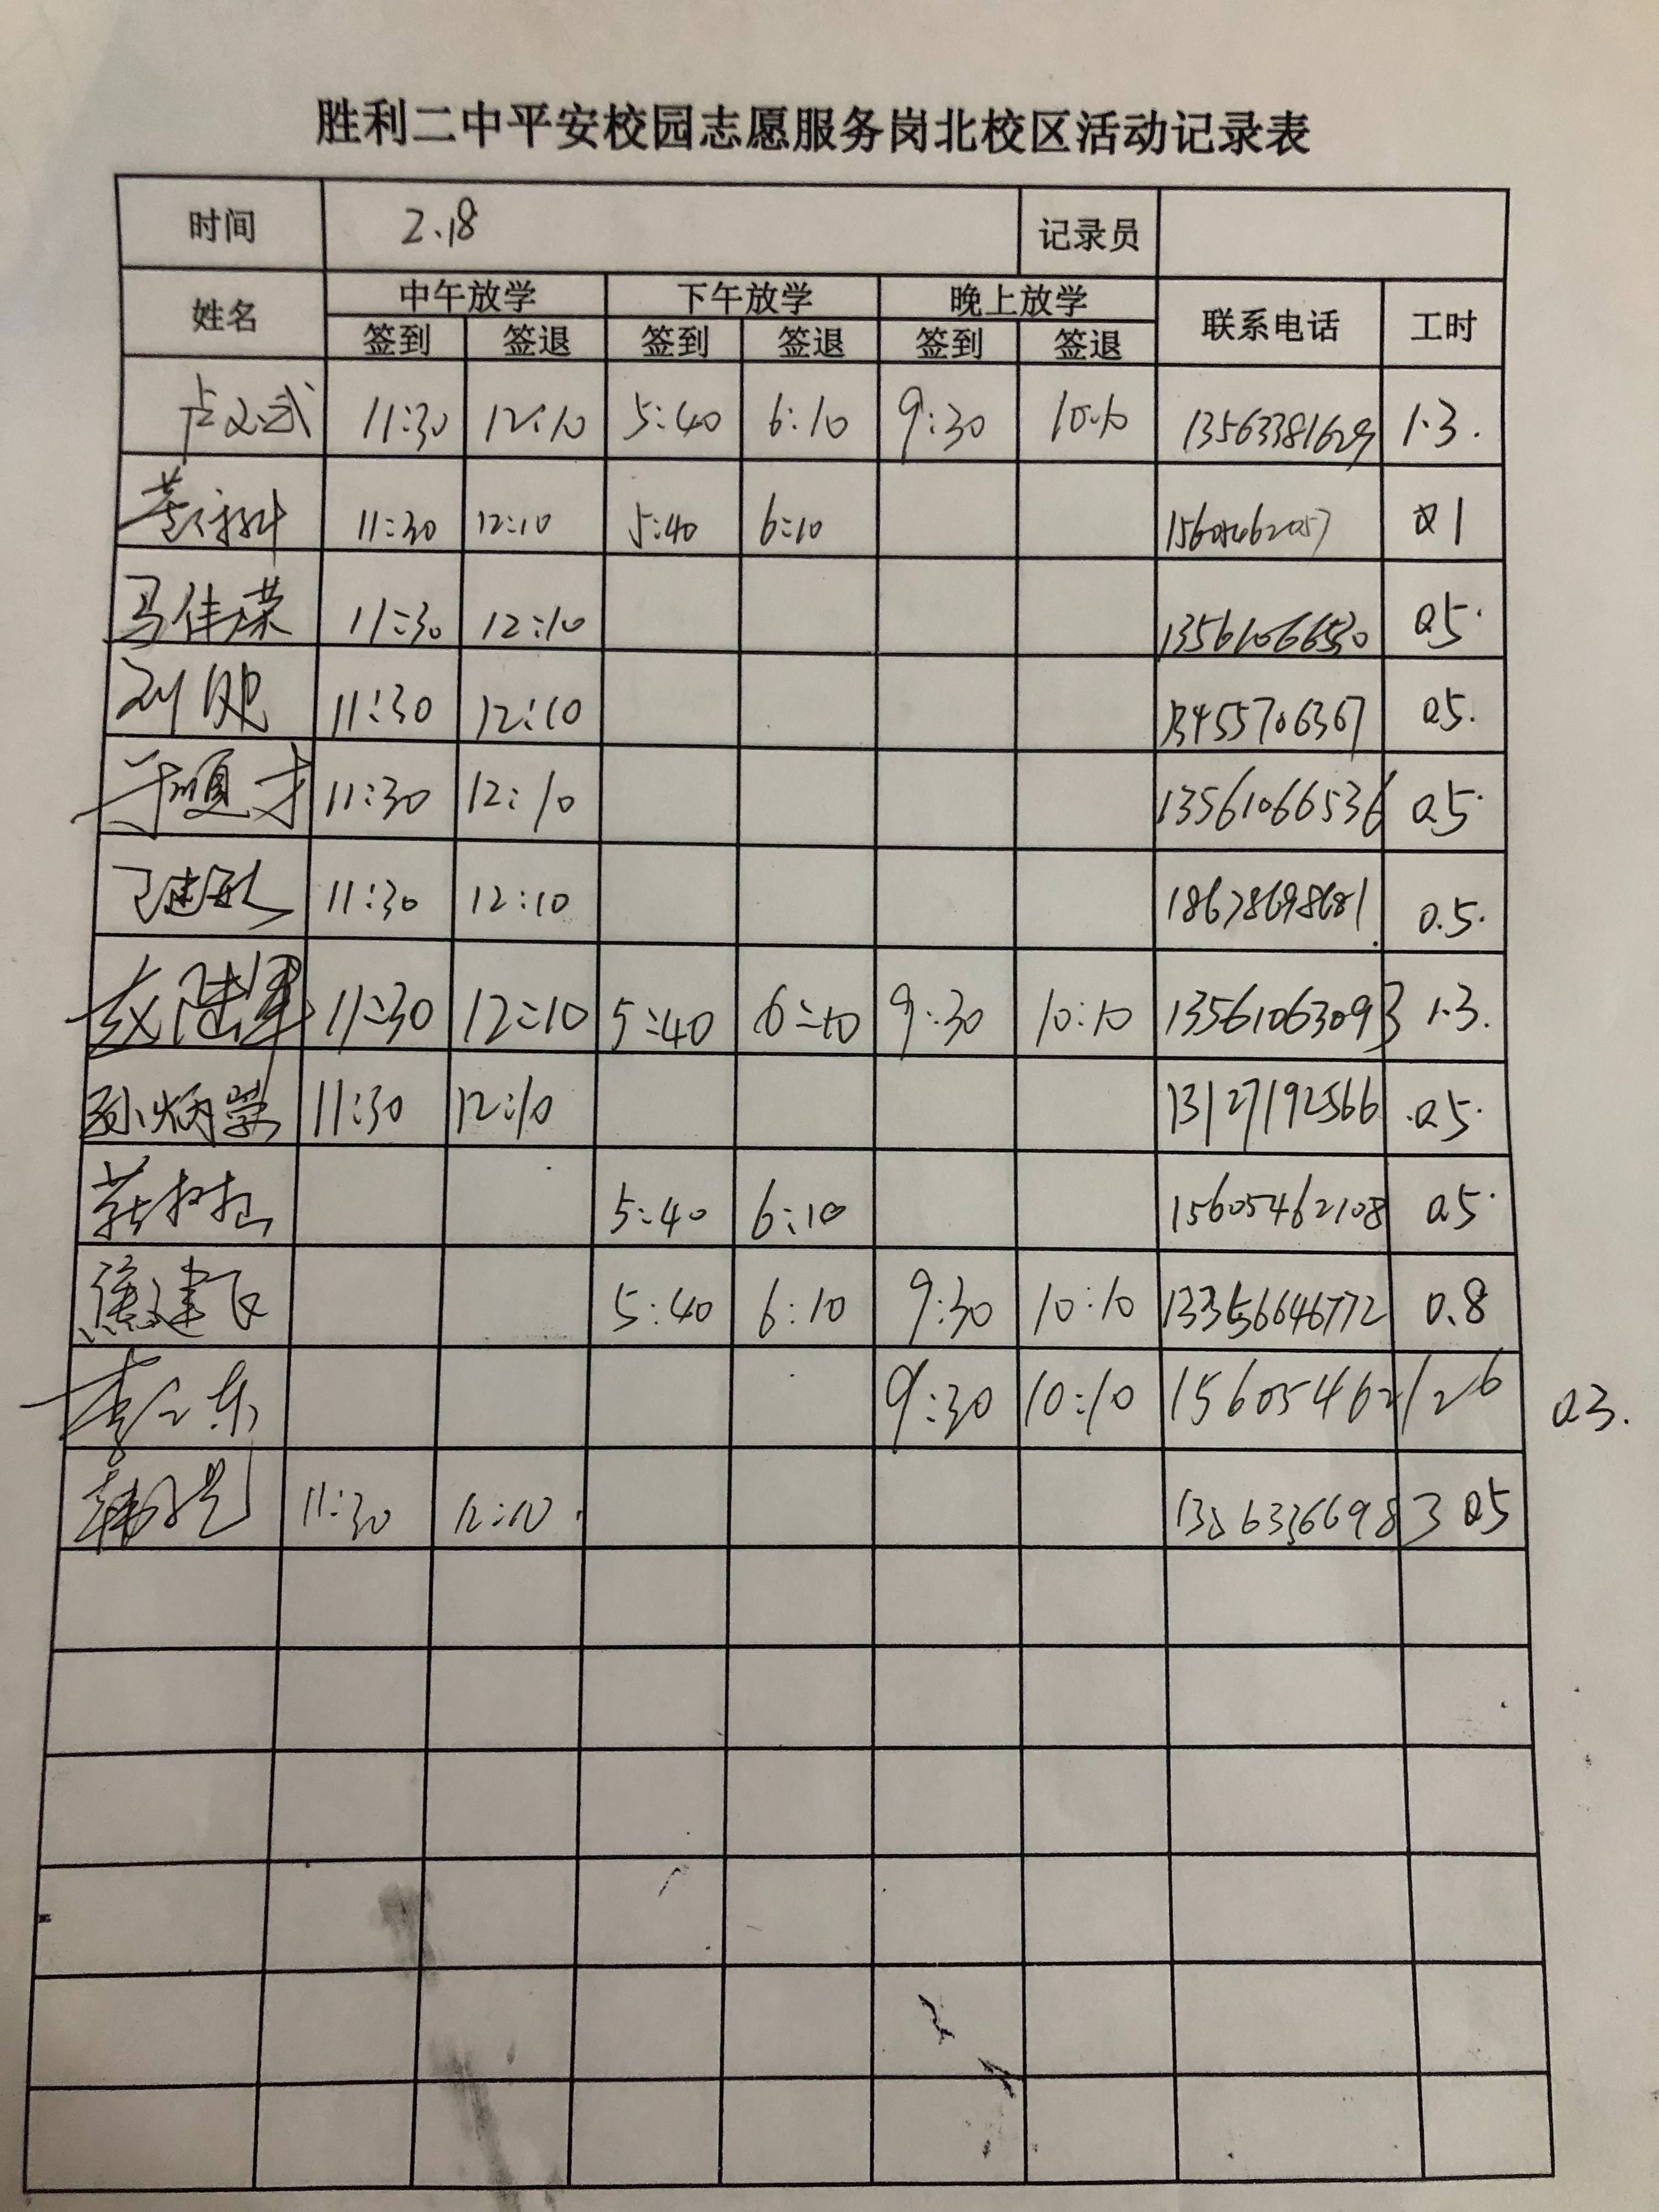 胜利二中平安校园志愿服务岗北校区活动记录表
时间 2.18 记录员
姓名 中午放学 下午放学 晚上放学 联系电话 工时
签到 签退 签到 签退 签到 签退
卢文武 11:30 12:10 5:40 6:10 9:30 10:10 13563381629 1.3.
11:30 12:10 5:40 6:10 15605462057 1
马佳荣 11:30 12:10 13561066530 0.5.
刘 11:30 12:10 13455706367 0.5.
于顺才 11:30 12:10 13561066536 0.5.
11:30 12:10 18678698681 0.5.
赵陆军 11:30 12:10 5:40 6:10 9:30 10:10 13561063093 1.3.
孙炳荣 11:30 12:10 13127192566 0.5.
5:40 6:10 15605462108 0.5.
焦建飞 5:40 6:10 9:30 10:10 13356646772 0.8
李 东 9:30 10:10 15605462126 0.3.
韩 11:30 12:10. 0.5